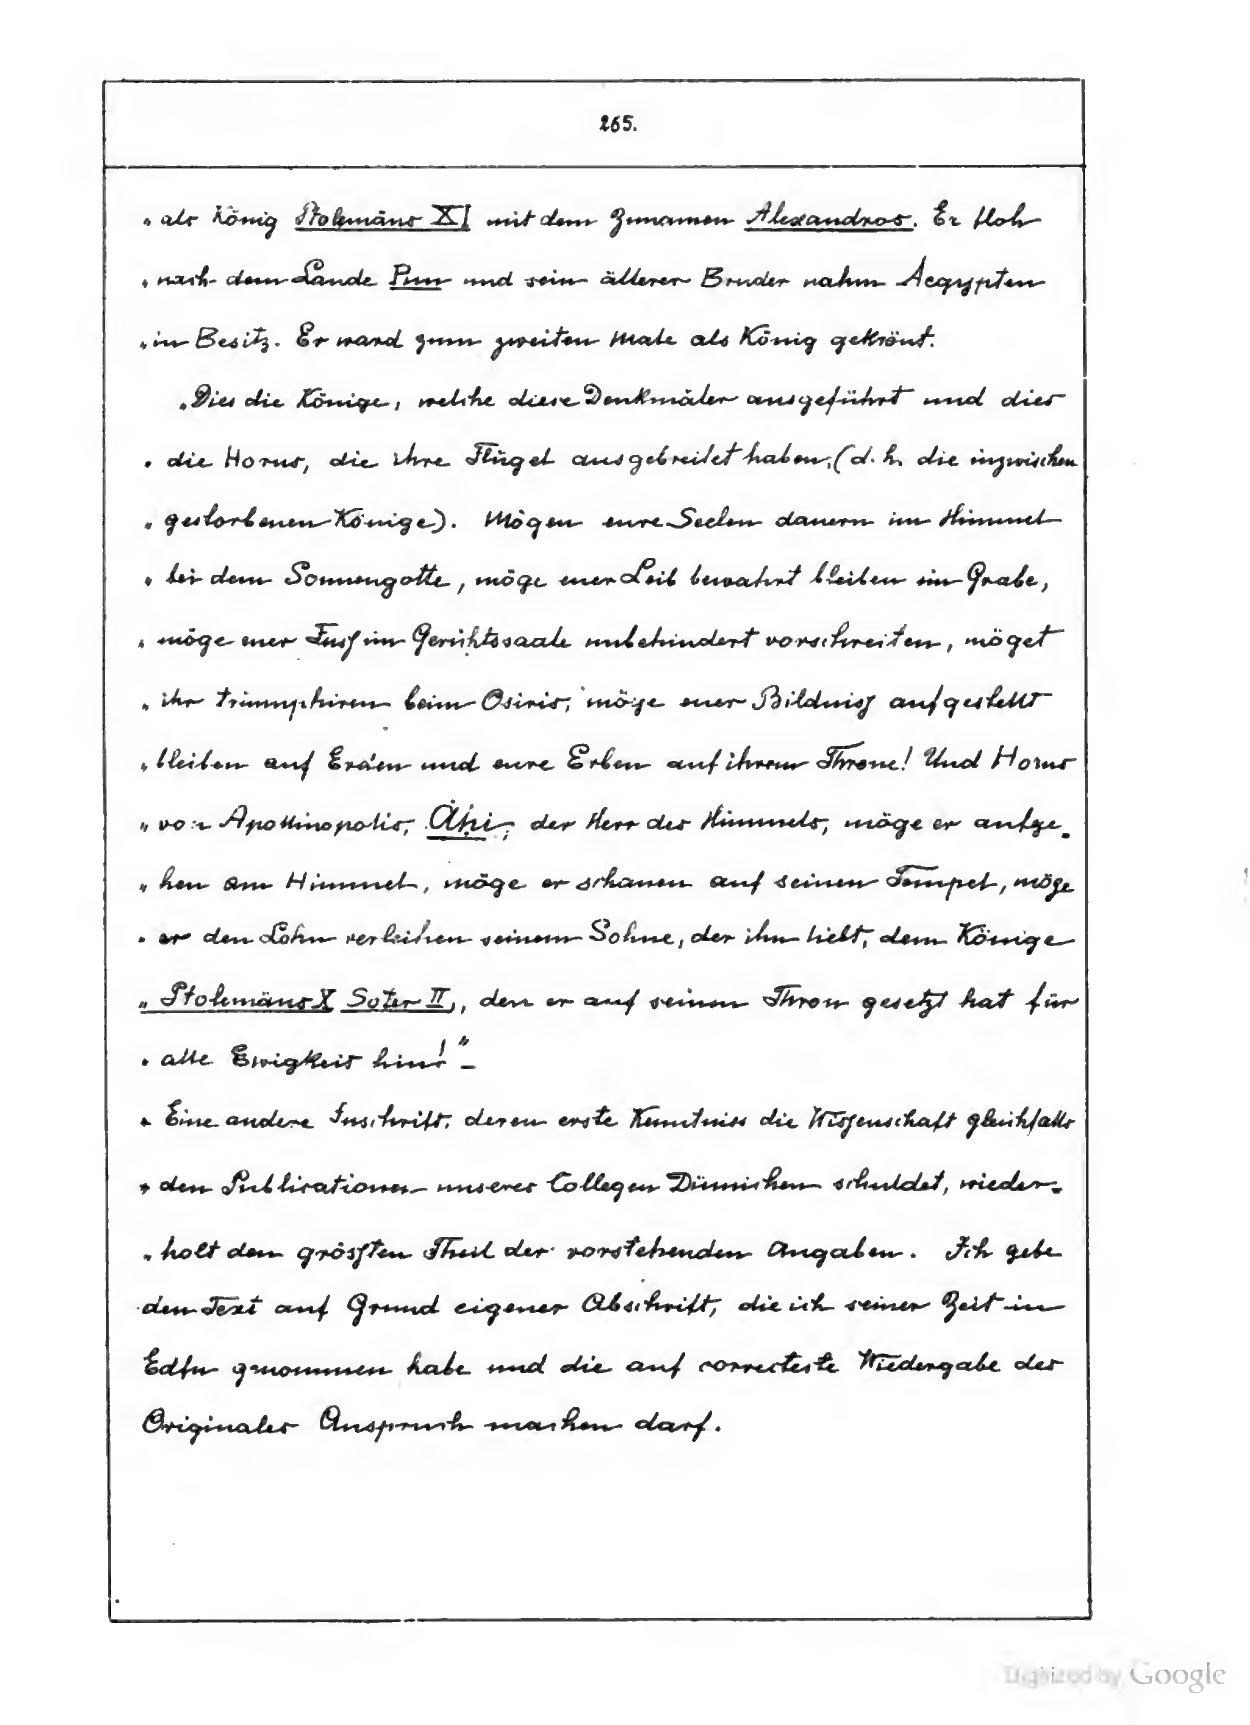 265.
„ als König Ptolemäus XI mit dem Zunamen Alexandros. Er floh
„ nach dem Lande Pun und sein älterer Bruder nahm Aegypten
„ in Besitz. Er ward zum zweiten Male als König gekrönt.
„Dies die Könige, welche diese Denkmäler ausgeführt und dies
„ die Horus, die ihre Flügel ausgebreitet haben, (d. h. die inzwischen
„ gestorbenen Könige). Mögen eure Seelen dauern im Himmel
„ bei dem Sonnengotte, möge euer Leib bewahrt bleiben im Grabe,
„ möge euer Fuß im Gerichtssaale unbehindert vorschreiten, möget
„ ihr triumphiren beim Osiris, möge euer Bildniß aufgestellt
„ bleiben auf Erden und eure Erben auf ihrem Throne! Und Horus
„ von Apollinopolis, Ahi, der Herr des Himmels, möge er aufge-
„ hen am Himmel, möge er schauen auf seinen Tempel, möge
„ er den Lohn verleihen seinem Sohne, der ihn liebt, dem Könige
„ Ptolemäus X Soter II, den er auf seinen Thron gesetzt hat für
„ alle Ewigkeit hin!“ –
„ Eine andere Inschrift, deren erste Kenntniss die Wißenschaft gleichfalls
„ den Publicationen unseres Collegen Dümichen schuldet, wieder-
„ holt den größten Theil der vorstehenden Angaben. Ich gebe
den Text auf Grund eigener Abschrift, die ich seiner Zeit in
Edfu genommen habe und die auf correcteste Wiedergabe des
Originales Anspruch machen darf.
Digitized by Google